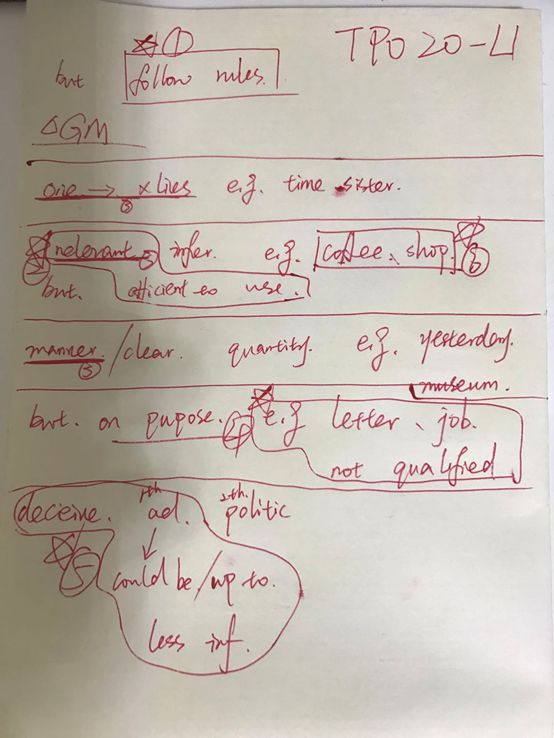 ① TPO 20-L1
but follow rules.
△GM
one → × lies e.g. time sister.
③
relevant ③ infer. e.g. coffee shop ③
② but. efficient to use.
manner/clear. quantity. e.g. yesterday.
③ museum.
but. on pupose. ④ e.g letter、job.
not qualified
1th 2th.
deceive. ad. politic
↓
⑤ could be/up to.
less inf.